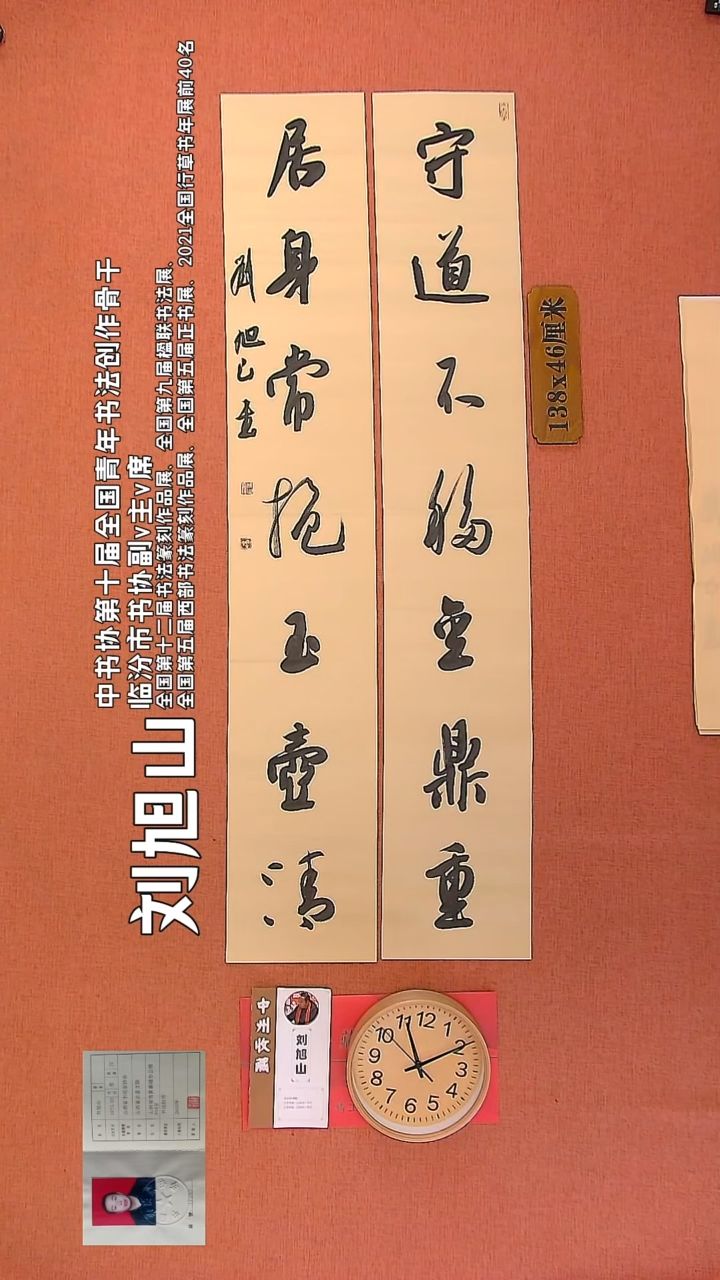 中书协第十届全国青年书法创作骨干
临汾市书协副v主v席
全国第十二届书法篆刻作品展、全国第九届楹联书法展、
全国第五届西部书法篆刻作品展、全国第五届正书展、2021全国行草书年展前40名
刘旭山
守道不移金鼎重
居身常抱玉壺清
劉旭山書
138x46厘米
刘旭山
12
1
2
3
4
5
6
7
8
9
10
11